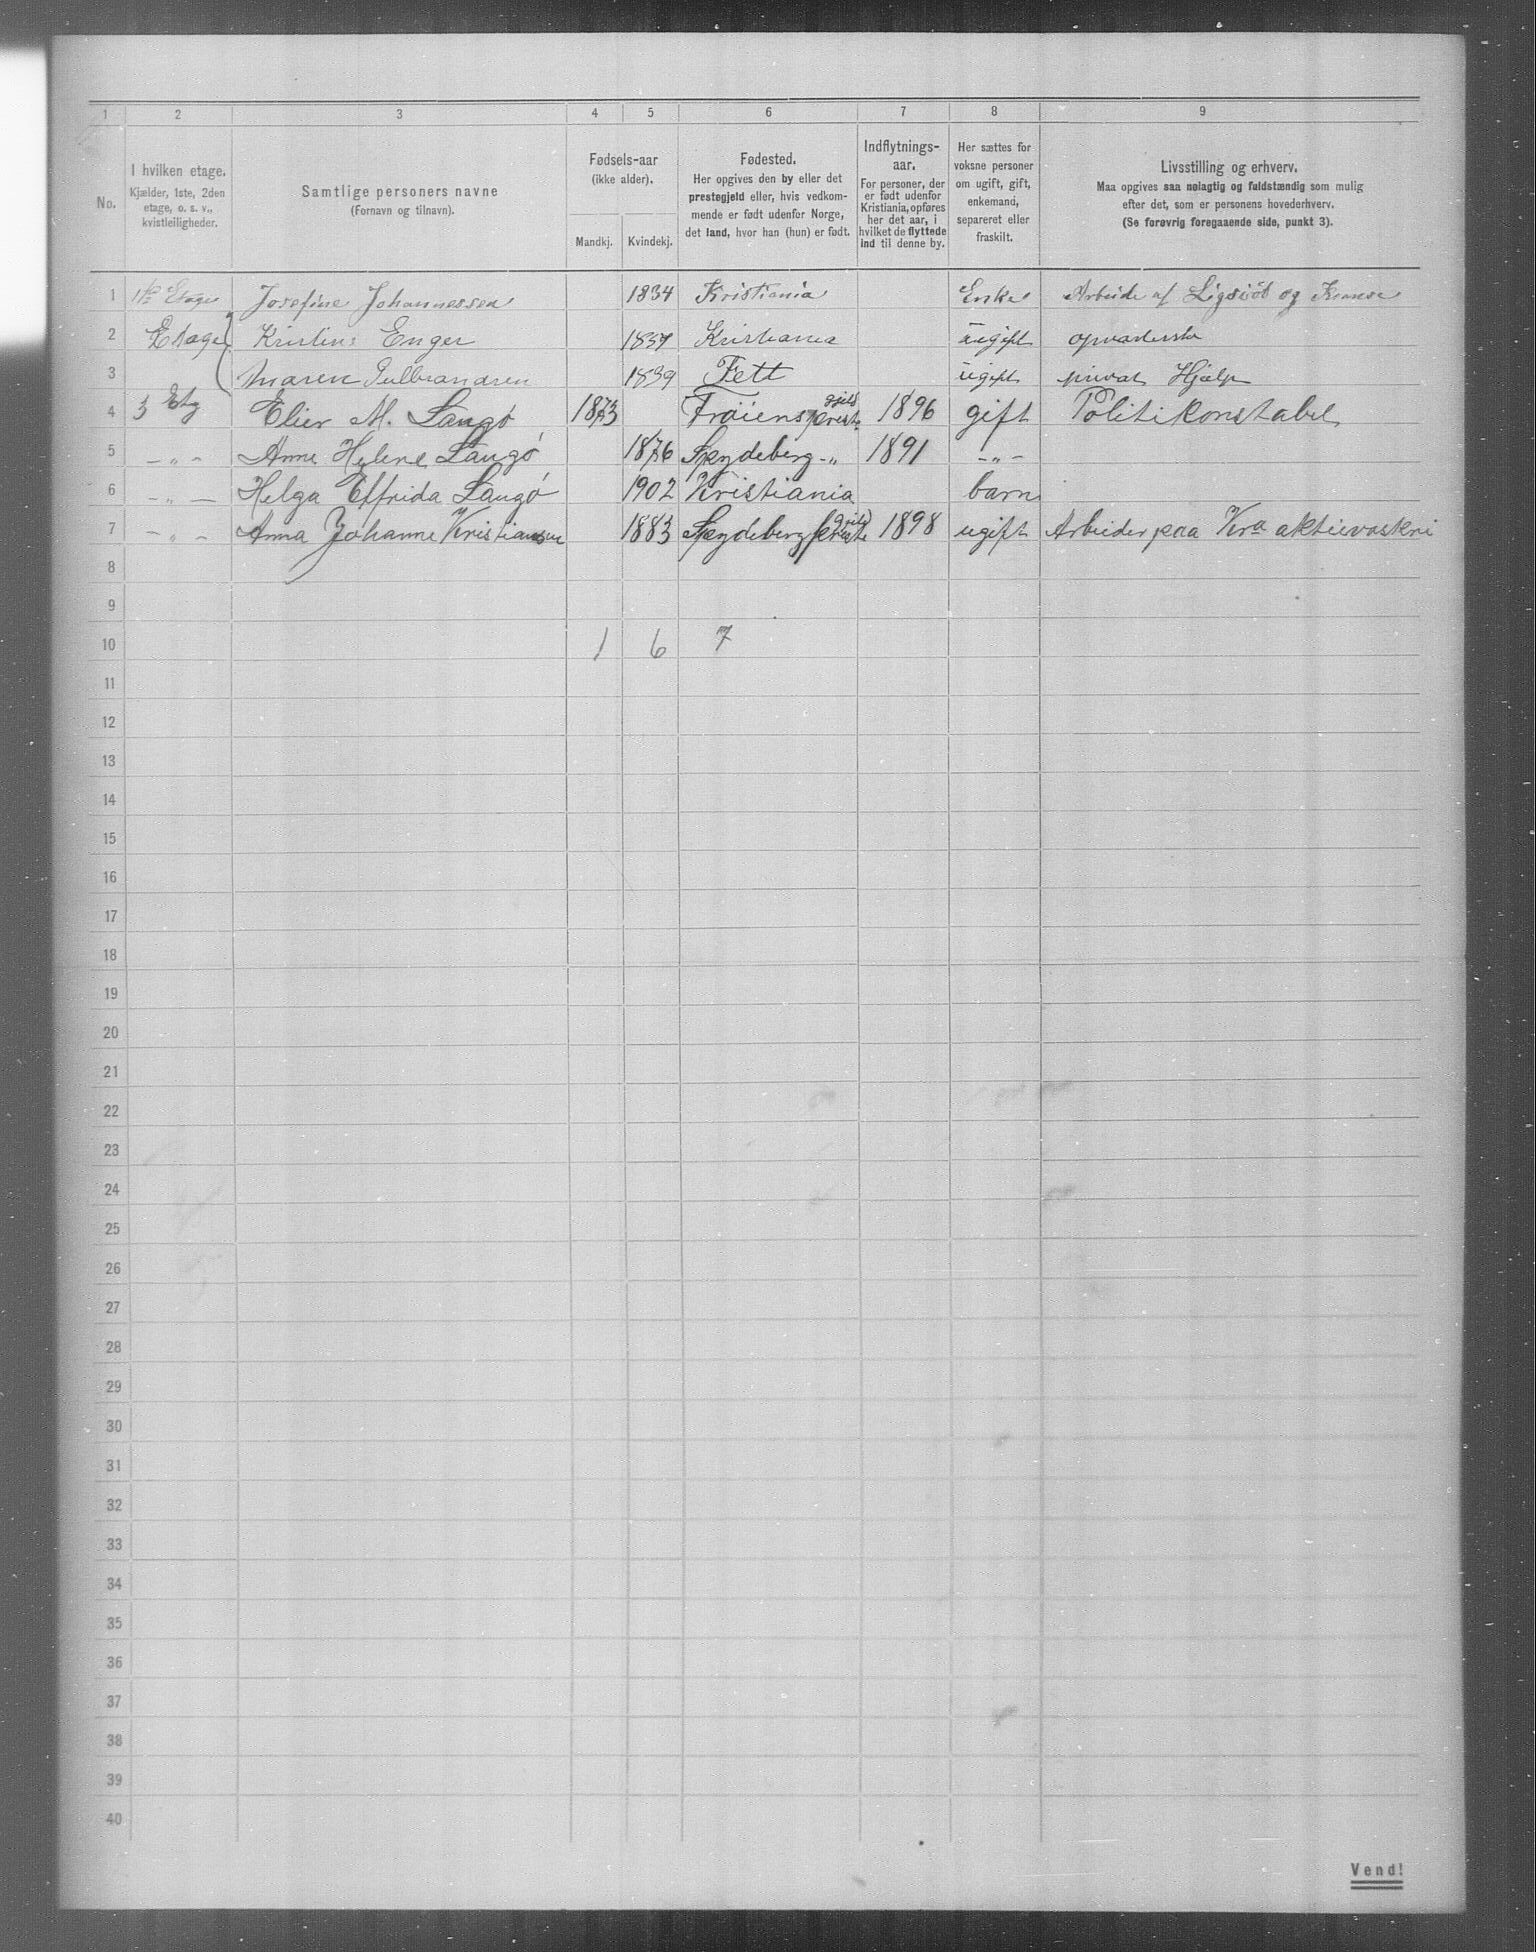 1 2 3 4 5 6 7 8 9
No.
I hvilken etage.
Kjælder, 1ste, 2den
etage, o. s. v.,
kvistleiligheder.
Samtlige personers navne
(Fornavn og tilnavn).
Fødsels-aar
(ikke alder).
Mandkj. Kvindekj.
Fødested.
Her opgives den by eller det
prestegjeld eller, hvis vedkom-
mende er født udenfor Norge,
det land, hvor han (hun) er født.
Indflytnings-
aar.
For personer, der
er født udenfor
Kristiania, opføres
her det aar, i
hvilket de flyttede
ind til denne by.
Her sættes for
voksne personer
om ugift, gift,
enkemand,
separeret eller
fraskilt.
Livsstilling og erhverv.
Maa opgives saa nøiagtig og fuldstændig som mulig
efter det, som er personens hovederhverv.
(Se forøvrig foregaaende side, punkt 3).
1 1ste Etage Josefine Johannessen 1834 Kristiania Enke Arbeide af og
2 Etage Kristine Enger Kristiania ugift
3 Maren Gulbrandsen 1839 Fett ugift privat Hjælp
4 3 Etg Elier M. Langö 1873 Fröiens prestegjeld 1896 gift Politikonstabel
5 -„- Anne Helene Langö 1876 Spydeberg -„- 1891 -„-
6 -„- Helga Effrida Langö 1902 Kristiania barn
7 -„- Anna Johanne Kristiansen 1883 Spydeberg prestegjeld 1898 ugift Arbeider paa Kra aktievaskri
8
9
10 1 6 7
11
12
13
14
15
16
17
18
19
20
21
22
23
24
25
26
27
28
29
30
31
32
33
34
35
36
37
38
39
40
Vend!